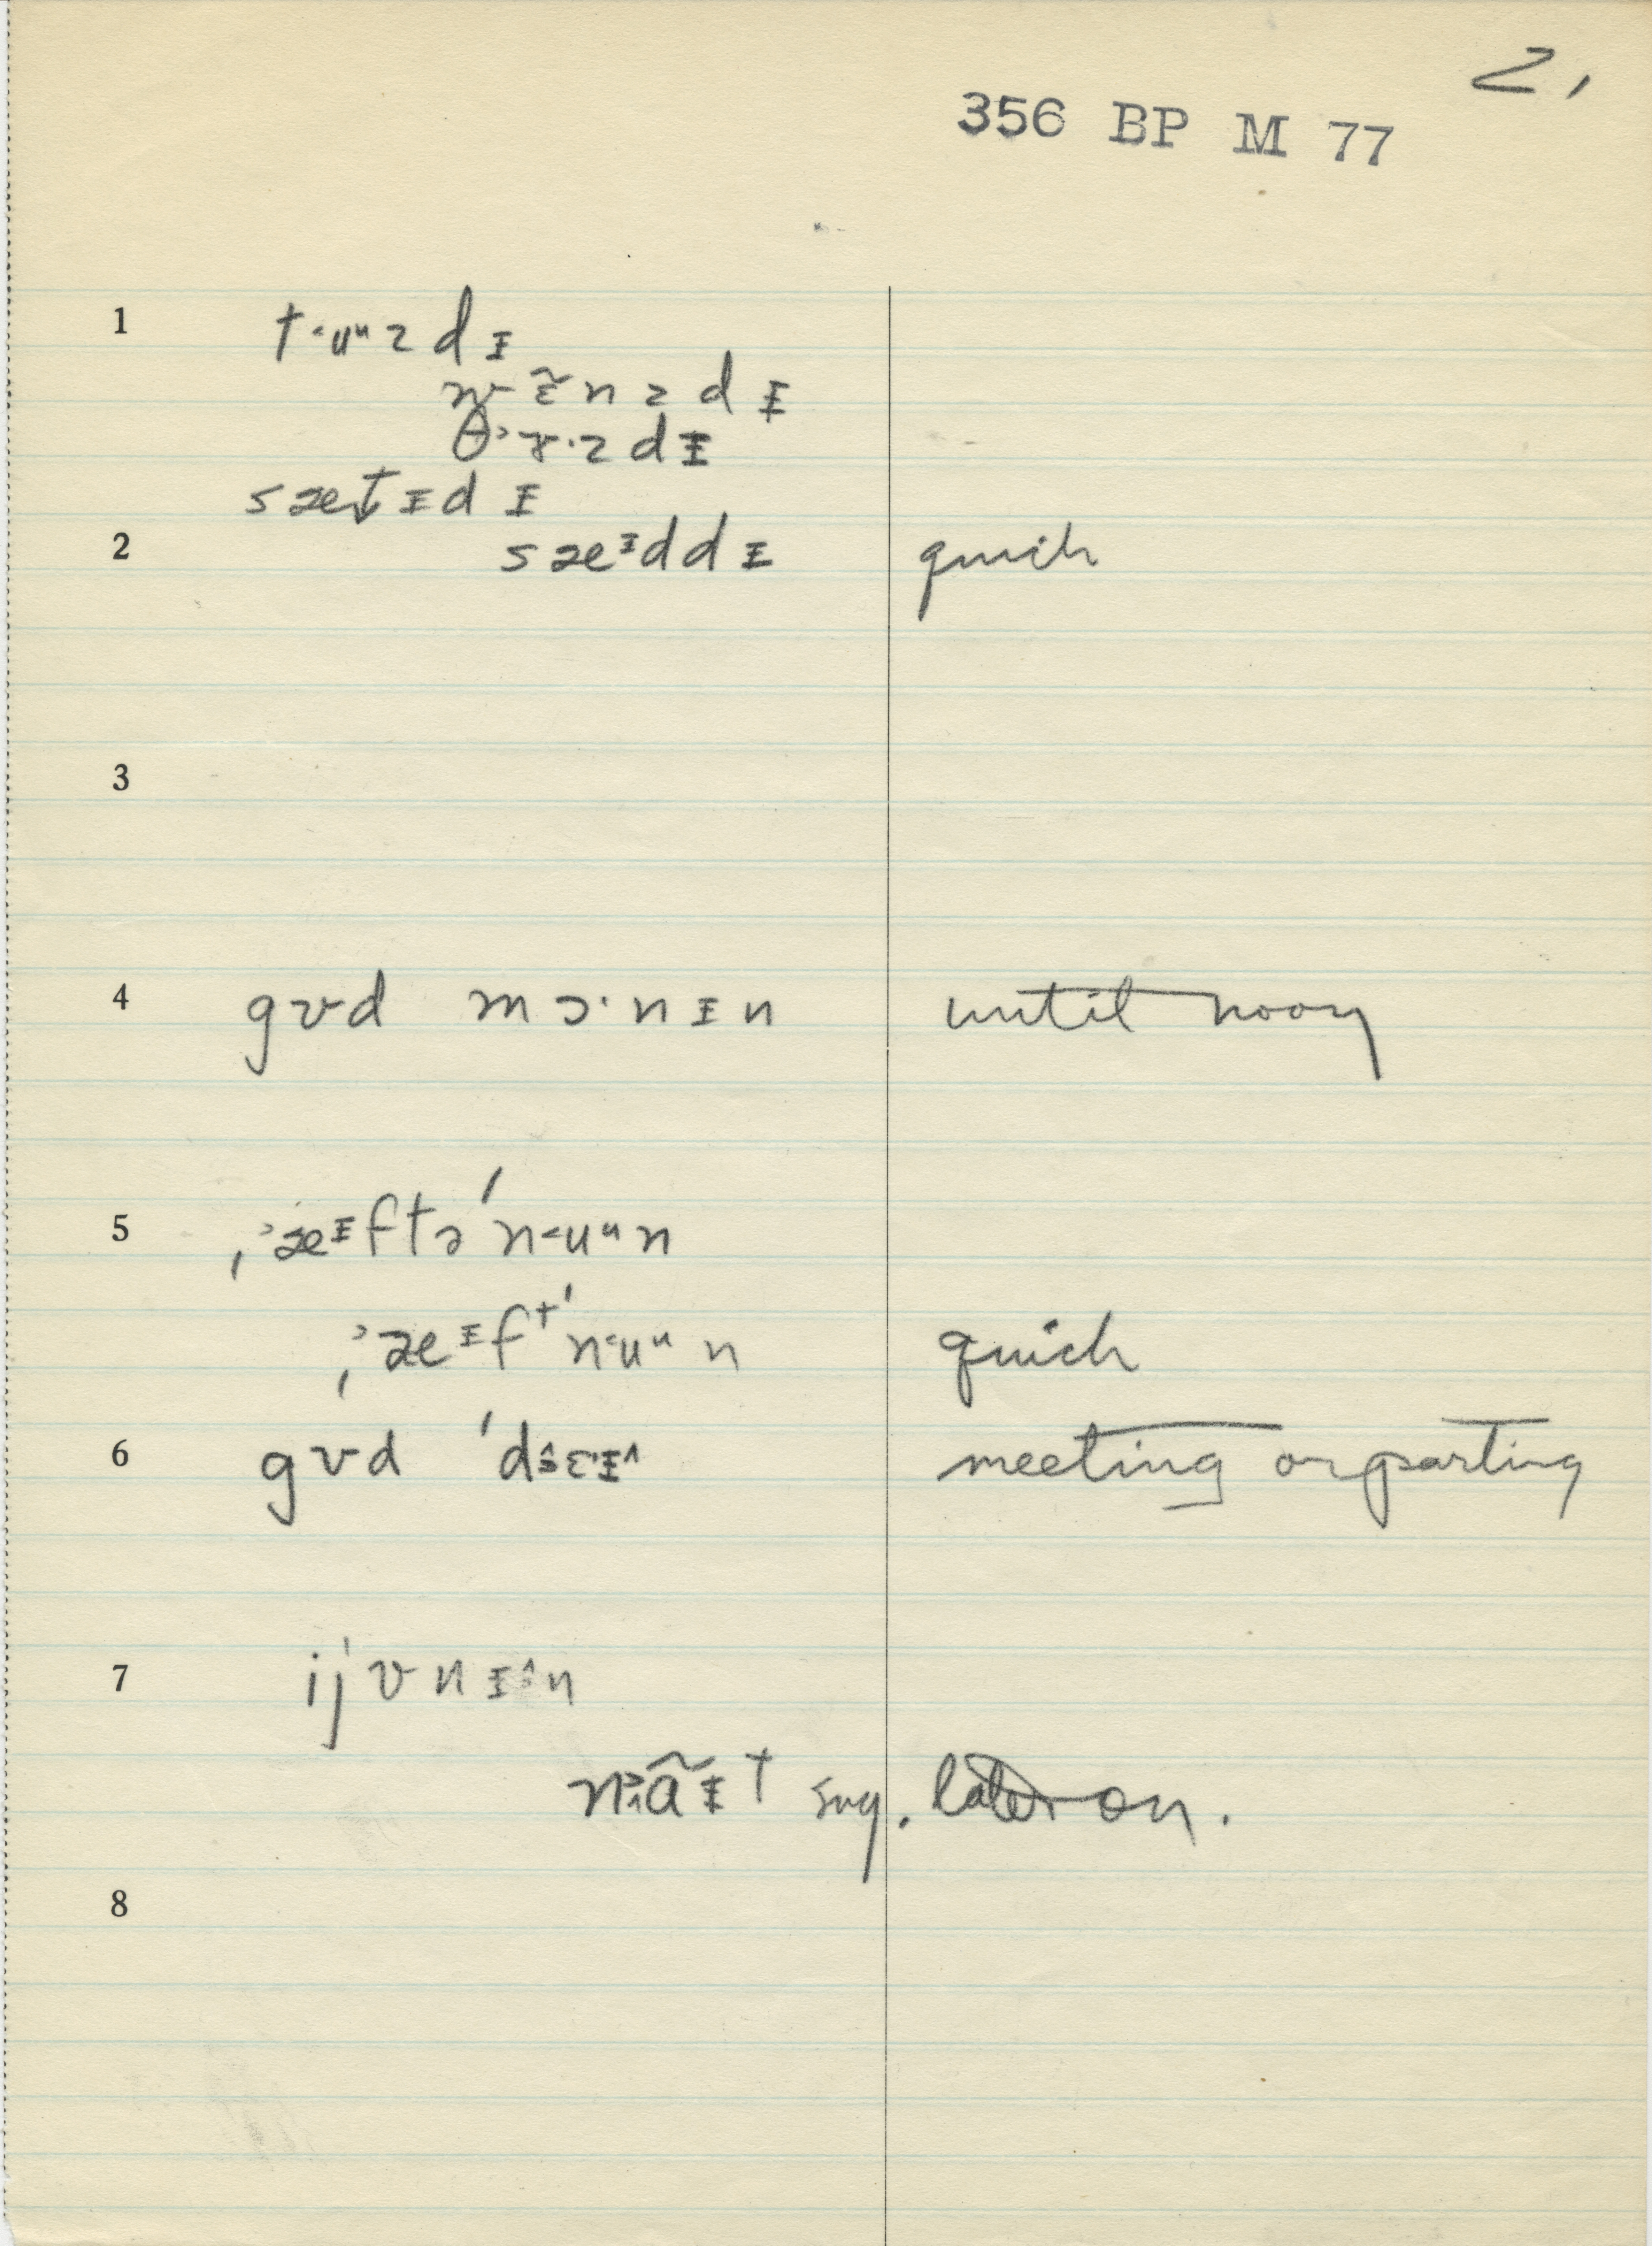 2,
356 BP M 77
1 t˂uᵘzdɪ
wɛ̃nzdɪ
θ˃ɤ·zdɪ
sætɪdɪ
2 sæᶦddɪ quick
3
4 gɤd mɔ·nɪn until noon
5 ˌ˃æᶦftə'n˂uᵘn
ˌ˃æᶦfᵗ'n˂uᵘn quick
6 gɤd meeting or parting
7
sug. later on.
8